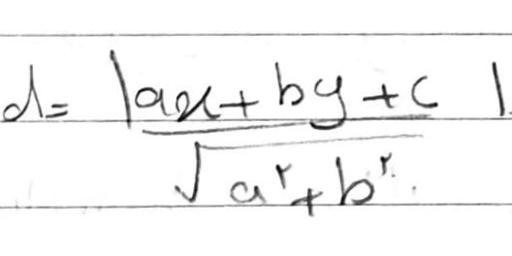 d = |ax + by + c|
√a² + b²